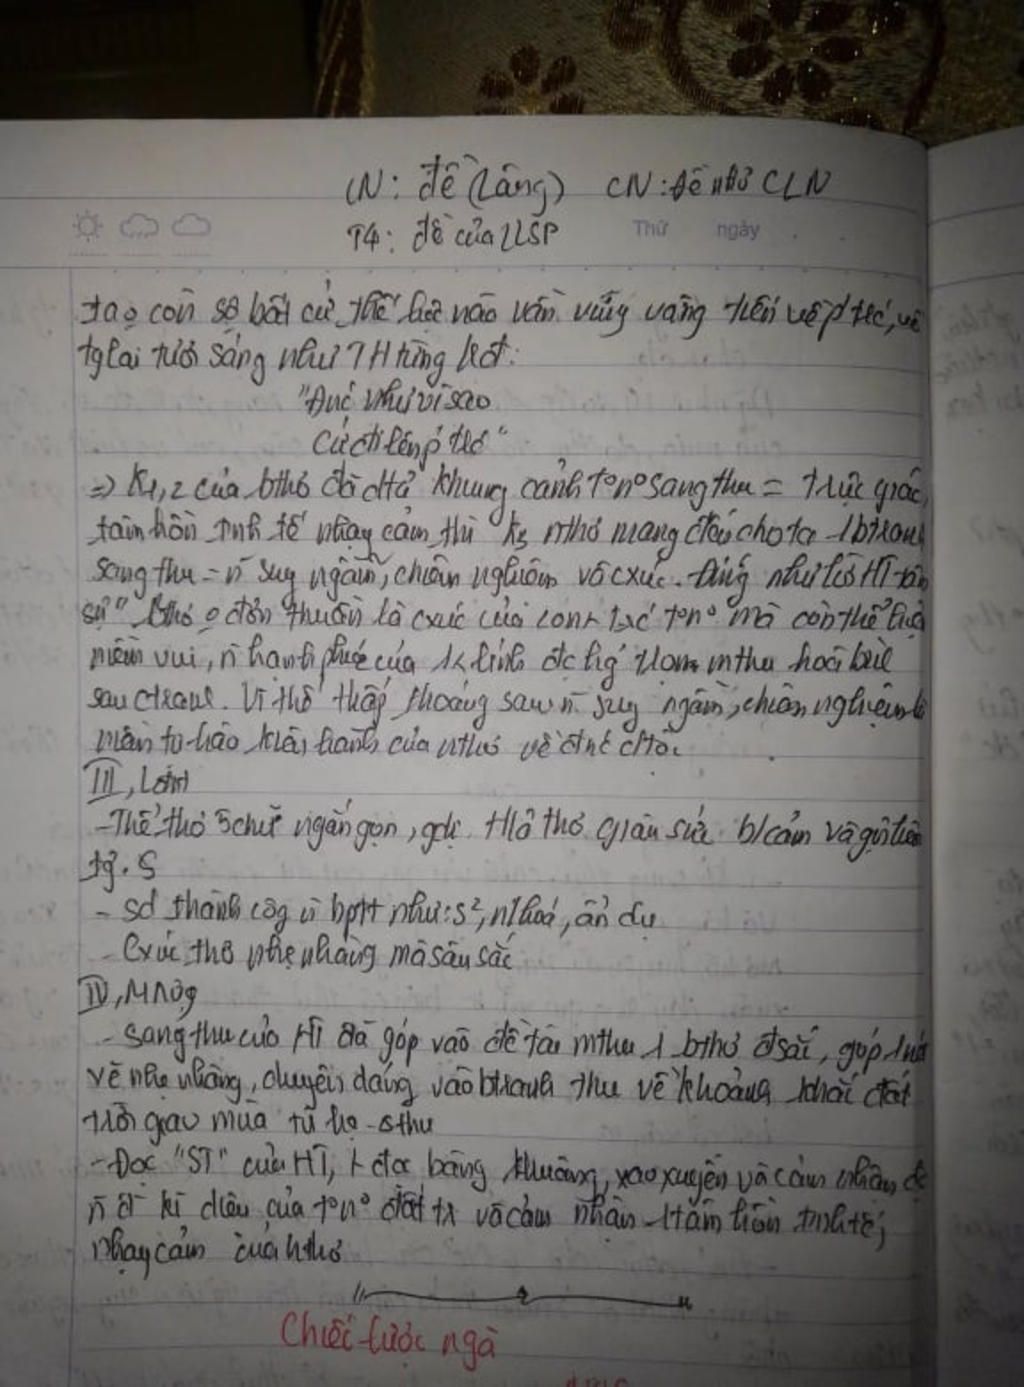 CN: đề (Lâng) CN: đề nhớ CLN
T4: đề của LLSP Thứ ngày
bất cứ thế lực nào vẫn vững vàng tiến về p trc, về
tglai tươi sáng như TH từng
"Đnc như vì sao
Cứ đi lên p trc"
=> K1,2 của bthơ đã khung cảnh t°n° sang thu = trực giác,
tâm hồn tinh tế nhạy cảm thì K3 nthơ mang đến cho ta 1 btranh
sang thu = n suy ngẫm, chiêm nghiệm và cxúc. Đúng như HT tâm
sự " Bthơ đơn thuần là cxúc của t°n° mà còn thể hiện
niềm vui, n hạnh phúc của 1 lính đc mthu hoà bình
sau ctranh. Vì thế thấp thoáng sau n suy ngẫm, chiêm nghiệm là
niềm tự hào kiêu hãnh của nthơ về đnc
III,
- Thể thơ 5 chữ ngắn gọn, giàu sức b/cảm và gợi
- sd thành côg n bptt như: s², nhoá, ẩn dụ
- Cxúc thơ nhẹ nhàng mà sâu sắc
IV, Mrộg
- Sang thu của HT đã góp vào đề tài mthu 1 bthơ đsắc, góp 1 nét
vẽ nhẹ nhàng, duyên dáng vào btranh thu về khoảnh khắc đất
trời giao mùa từ hạ - thu
- Đọc "ST" của HT, đọc bâng khuâng, xao xuyến và cảm nhận đc
n kì diệu của t°n° đất tx và cảm nhận 1 tâm hồn tinh tế,
nhạy cảm của nthơ
Chiếc lược ngà